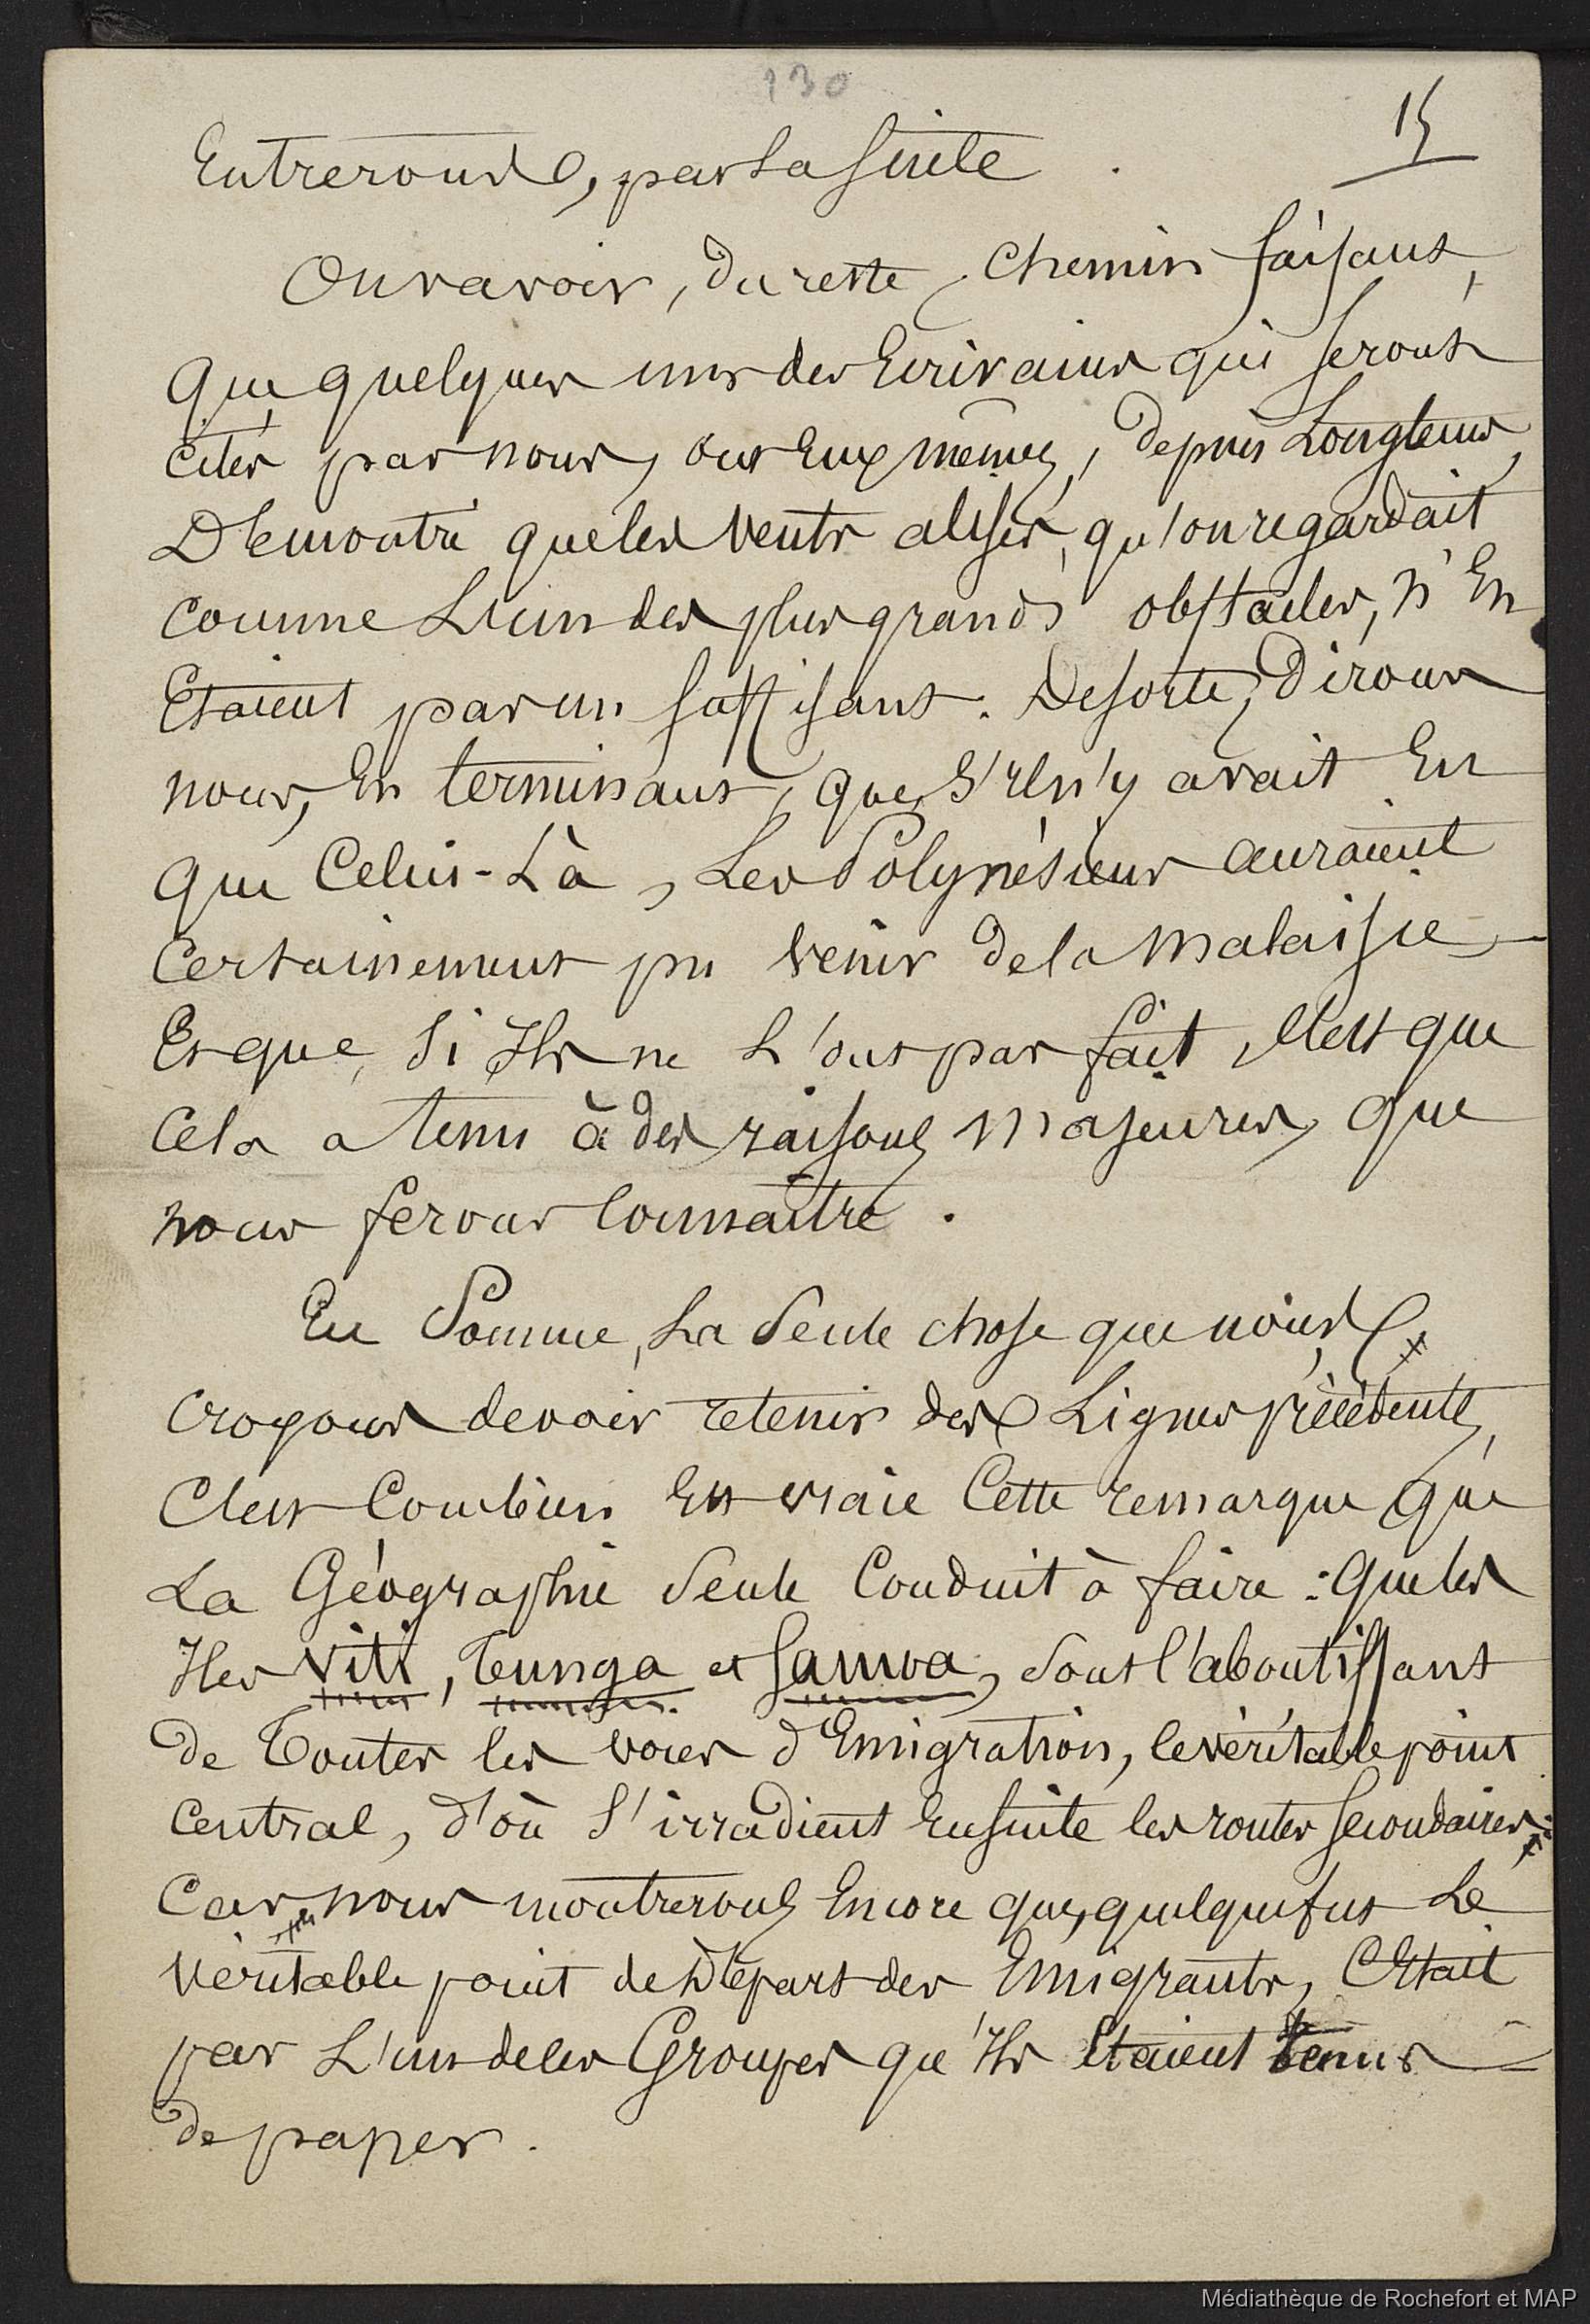 130
15
Entrerons, par la suite.
On va voir, du reste, Chemin faisant,
que quelques uns des Ecrivains qui seront
cités par nous, ont Eux mêmes, depuis Longtems,
Démontré que les Vents alisés, qu'on regardait
comme L'un des plus grands obstacles, n'En
Etaient pas un suffisant. De sorte, dirons
nous, En terminant, que, s'il n'y avait Eu
que Celui-Là, Les Polynésiens auraient
Certainement pu venir de la Malaisie
Et que, si Ils ne L'ont pas fait, C'est que
Cela a tenu à des raisons majeures, que
nous ferons Connaître.
En Somme, La Seule chose que nous
croyons devoir retenir des Lignes précédentes,
C'est Combien Est vraie Cette remarque que
La Géographie Seule Conduit à faire : que les
Iles Viti, Tunga et Samoa, sont l'aboutissant
de Toutes les voies d'Emigration, le véritable point
Central, d'où s'irradient Ensuite les routes secondaires;
Car nous montrerons Encore que, quelque fut Le
véritable point de Départ des Emigrants, C'Etait
par L'un de ces Groupes qu'Ils Etaient tenus
de passer.
Médiathèque de Rochefort et MAP